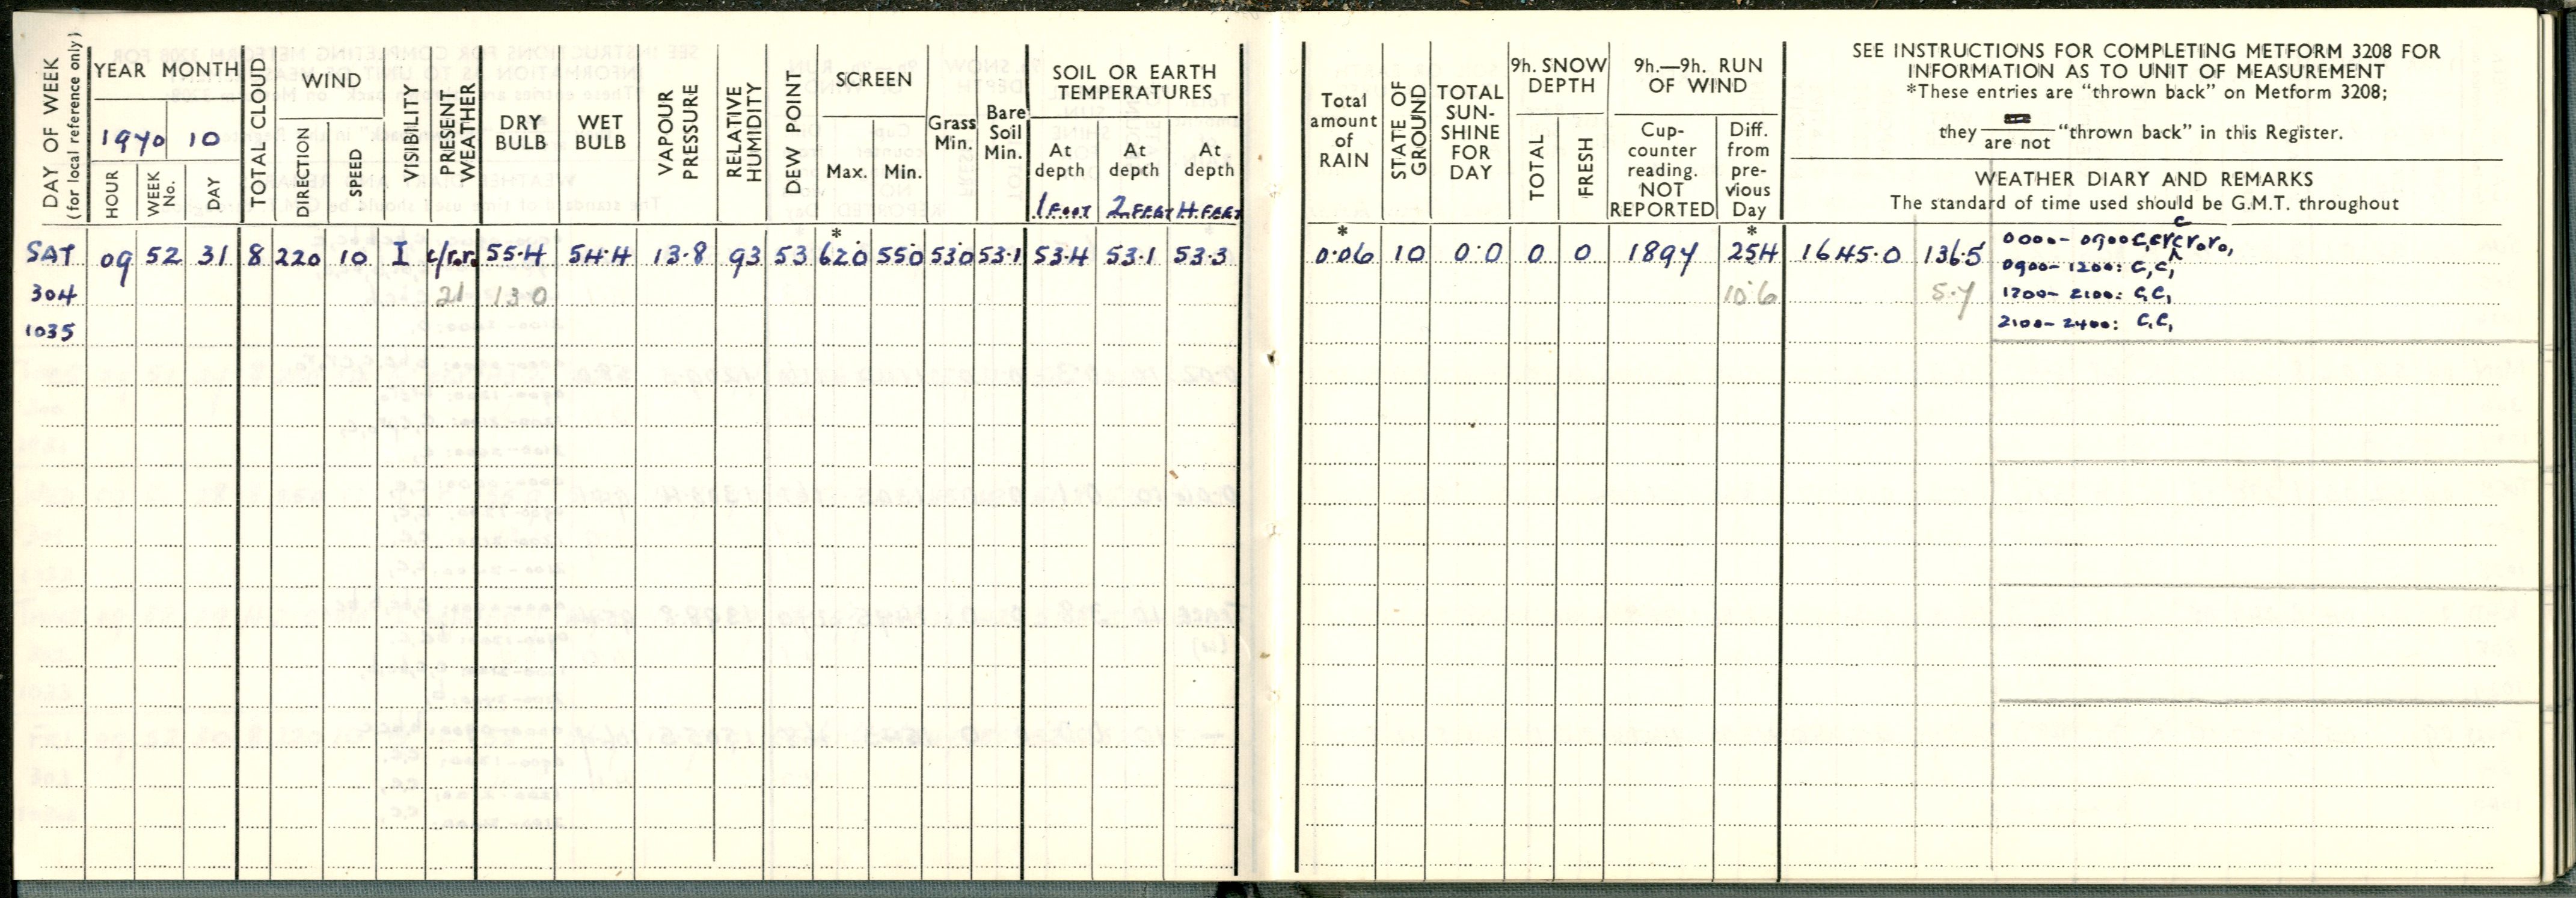 DAY OF WEEK
(for local reference only)
YEAR MONTH
1970 10
HOUR
WEEK No.
DAY
TOTAL CLOUD
WIND
DIRECTION
SPEED
VISIBILITY
PRESENT WEATHER
DRY BULB
WET BULB
VAPOUR PRESSURE
RELATIVE HUMIDITY
DEW POINT
SCREEN
Max. Min.
Grass Min.
Bare Soil Min.
SOIL OR EARTH TEMPERATURES
At depth At depth At depth
1 FOOT 2 FEET 4 FEET
Total amount of RAIN
STATE OF GROUND
TOTAL SUN-SHINE FOR DAY
9h. SNOW DEPTH
TOTAL
FRESH
9h.—9h. RUN OF WIND
Cup-counter reading. NOT REPORTED
Diff. from pre-vious Day
SEE INSTRUCTIONS FOR COMPLETING METFORM 3208 FOR
INFORMATION AS TO UNIT OF MEASUREMENT
*These entries are "thrown back" on Metform 3208;
they are not "thrown back" in this Register.
WEATHER DIARY AND REMARKS
The standard of time used should be G.M.T. throughout
* * *
SAT 09 52 31 8 220 10 I c/r.r. 55.4 54.4 13.8 93 53 62.0 55.0 53.0 53.1 53.4 53.1 53.3 0.06 10 0.0 0 0 1897 254 1645.0 136.5
304 21 13.0 10.6 5.7
1035
0000-0900
0900-1200: c,c,
1200-2100: c,c,
2100-2400: c,c,